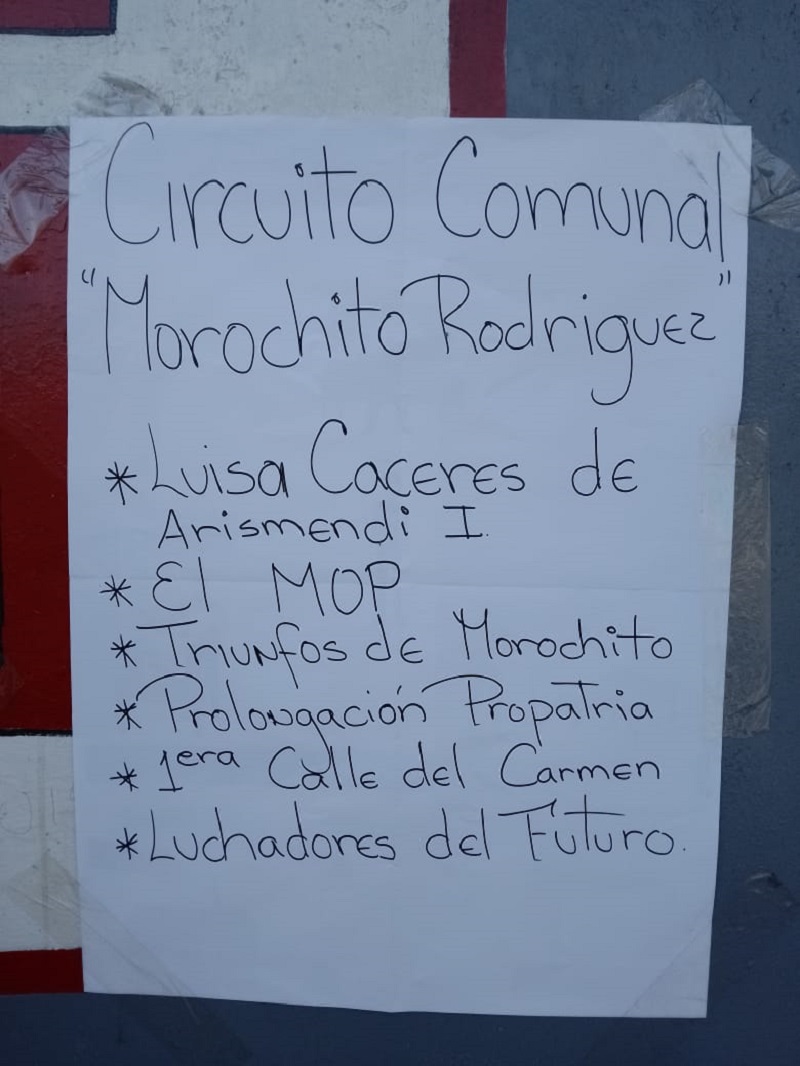 Circuito Comunal
"Morochito Rodriguez"
* Luisa Caceres de
Arismendi I.
* El MOP
* Triunfos de Morochito
* Prolongación Propatria
* 1era Calle del Carmen
* Luchadores del Futuro.